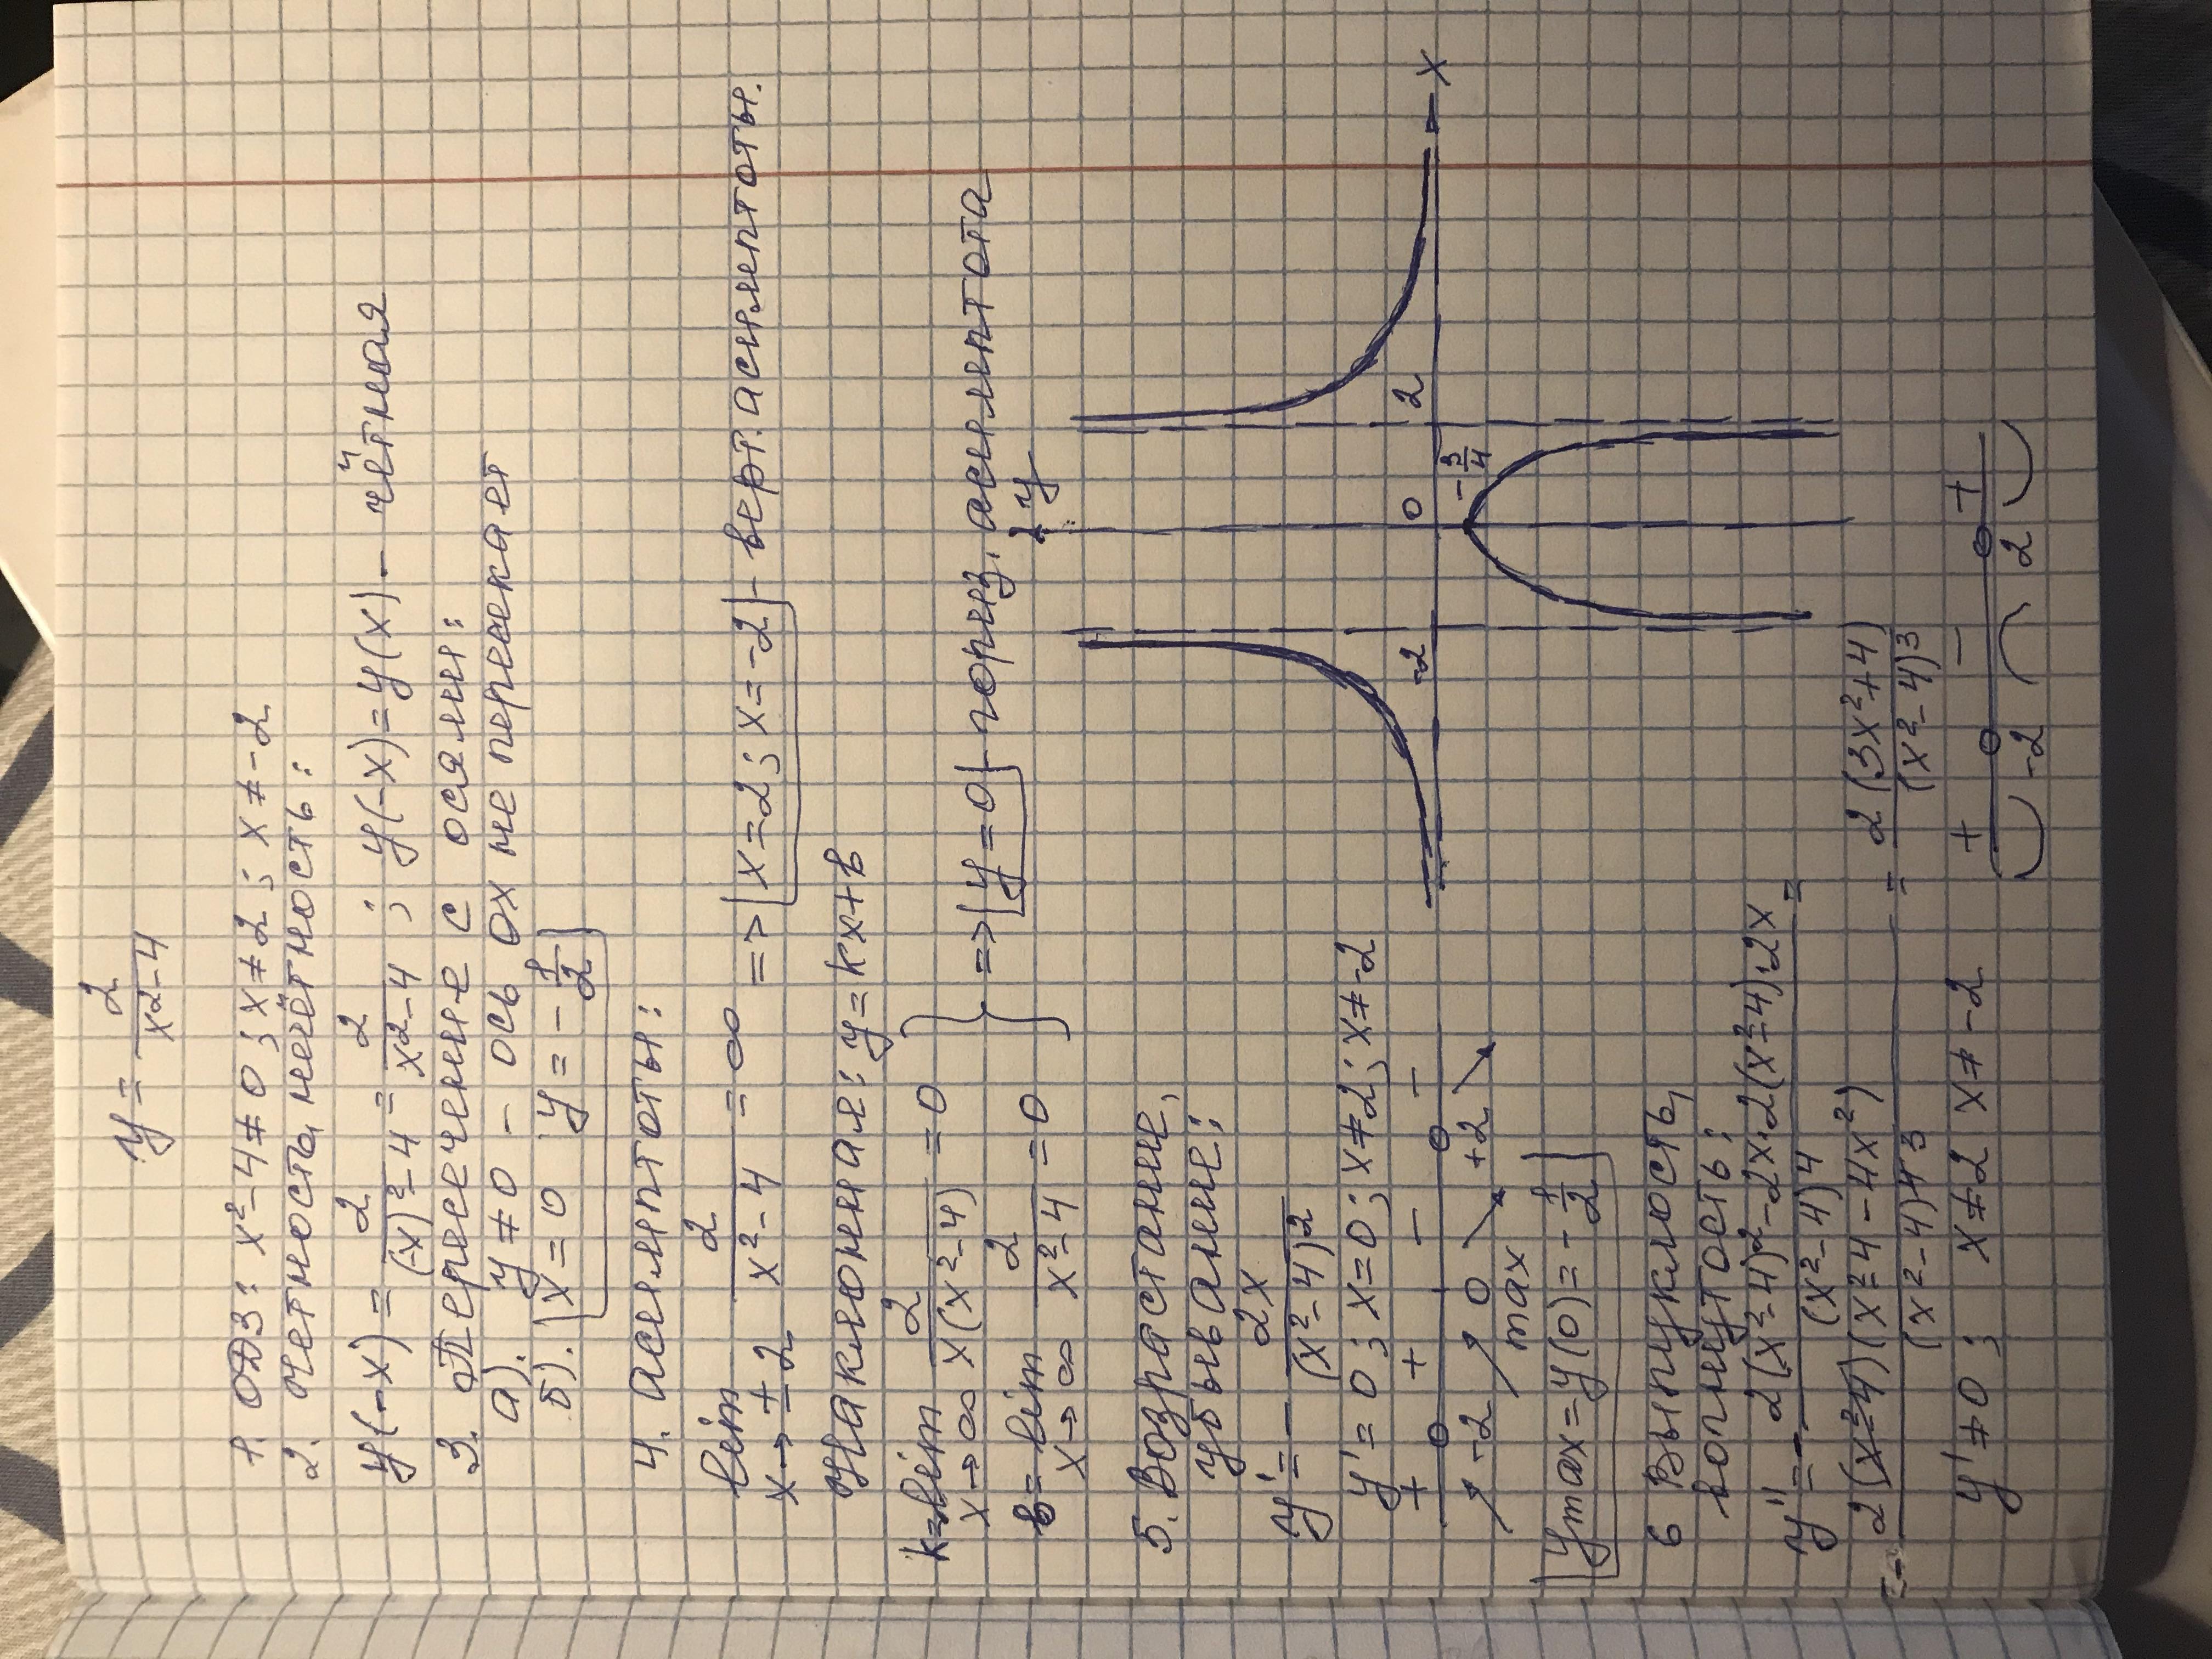 y = 2/(x²-4)
1. ОДЗ: x²-4≠0; x≠2; x≠-2
2. Чётность, нечётность:
y(-x) = 2/((-x)²-4) = 2/(x²-4); y(-x)=y(x) - чётная
3. Пересечение с осями:
а). y≠0 - ось ОХ не пересекает
б). x=0 y=-1/2
4. Асимптоты:
lim x→±2 2/(x²-4) = ∞ => x=2; x=-2 - верт. асимптоты.
Наклонная: y=kx+b
k=lim x→∞ 2/(x(x²-4)) = 0
b=lim x→∞ 2/(x²-4) = 0 } => y=0 - гориз. асимптота
5. Возрастание,
убывание:
y' = - 2x/(x²-4)²
y'=0; x=0; x≠2; x≠-2
+ + - -
-2 0 +2
max
ymax=y(0)=-1/2
y
x
-2 0 2
6 Выпуклость,
вогнутость:
y''=- 2(x²-4)²-2x·2(x²-4)·2x/(x²-4)⁴ =
2(x²-4)(x²-4-4x²)/(x²-4)⁴ ³ = 2(3x²+4)/(x²-4)³
y'≠0; x≠2 x≠-2
+ - +
-2 2